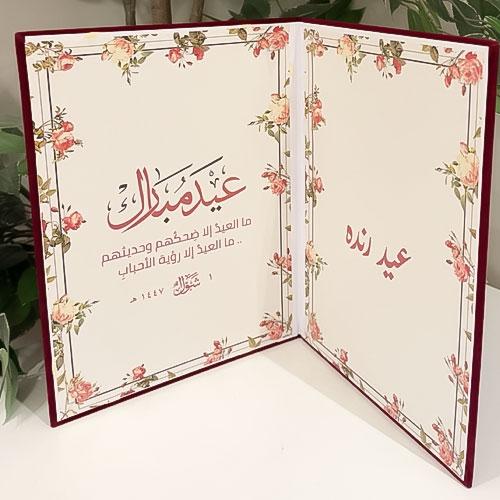 عيد مبارك
ما العيدُ إلا ضحكُهم وحديثهم
.. ما العيدُ إلا رؤية الأحبابِ
١ شوّال ١٤٤٧ هـ
عيد رنده